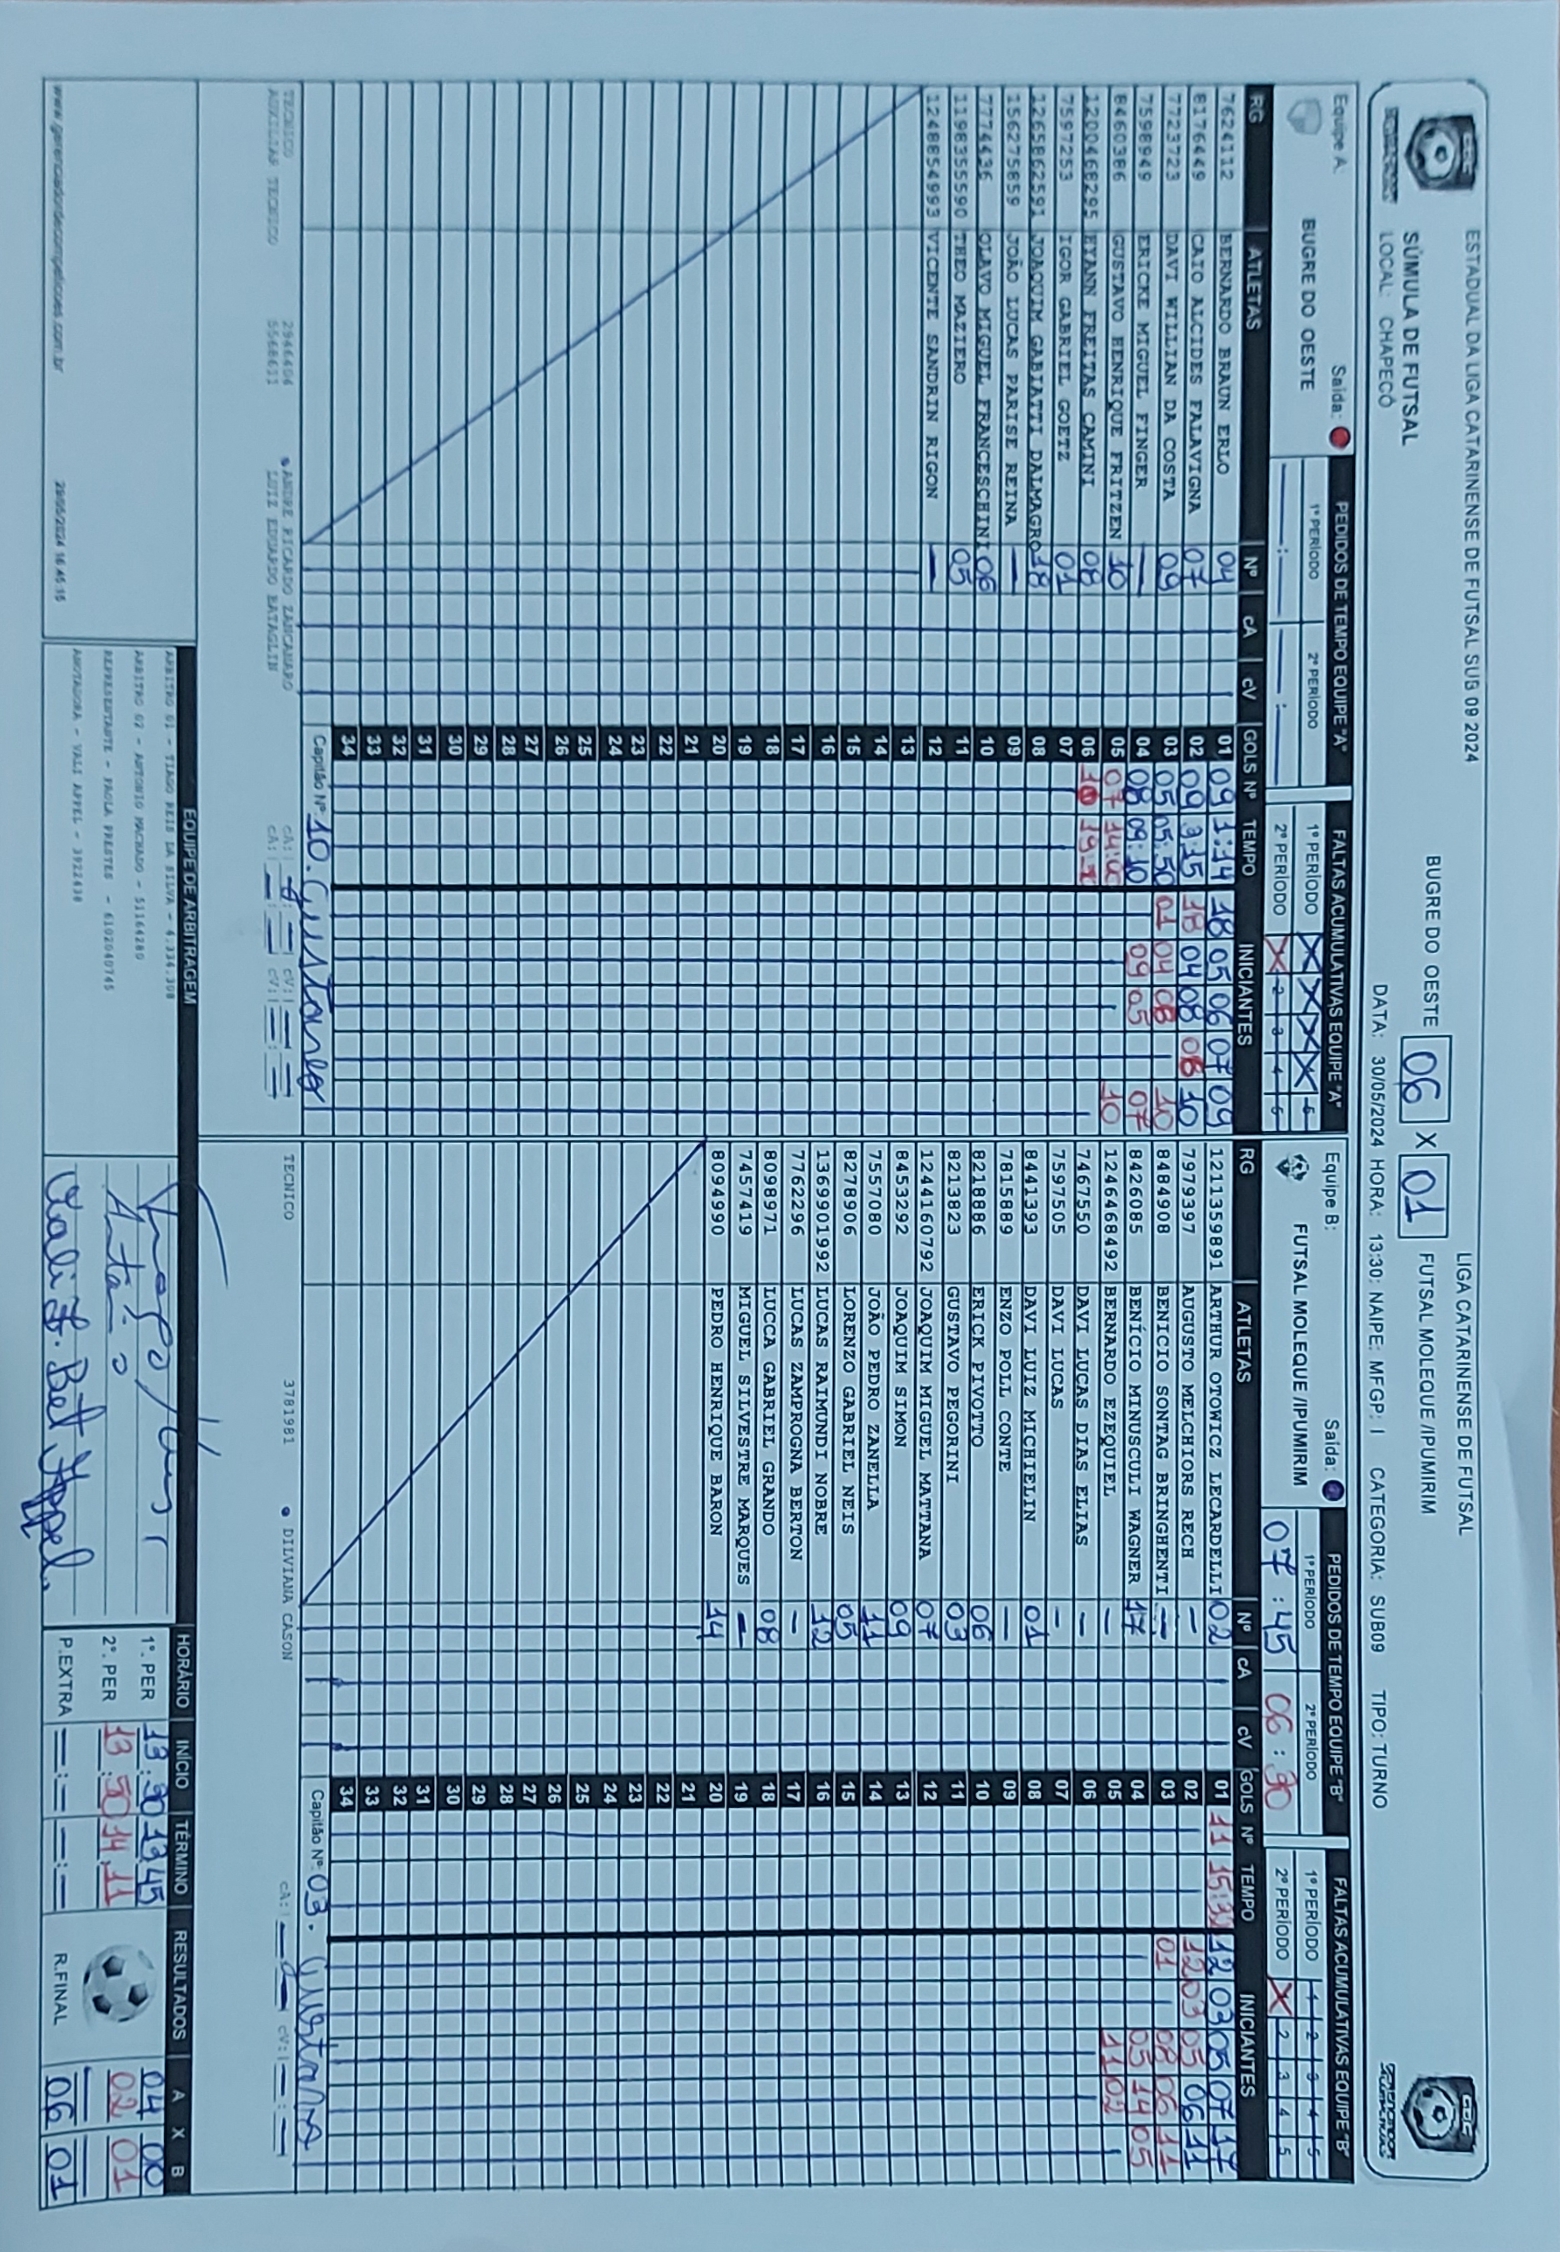 ESTADUAL DA LIGA CATARINENSE DE FUTSAL SUB 09 2024
LIGA CATARINENSE DE FUTSAL
SÚMULA DE FUTSAL
BUGRE DO OESTE 06 X 01 FUTSAL MOLEQUE /IPUMIRIM
LOCAL: CHAPECÓ
DATA: 30/05/2024 HORA: 13:30: NAIPE: MFGP: I CATEGORIA: SUB09 TIPO: TURNO
Equipe A: Saída:
BUGRE DO OESTE
PEDIDOS DE TEMPO EQUIPE "A"
1º PERÍODO 2º PERÍODO
FALTAS ACUMULATIVAS EQUIPE "A"
1º PERÍODO 5
2º PERÍODO 2 3 4 5
RG ATLETAS Nº cA cV GOLS Nº TEMPO INICIANTES
7624112 BERNARDO BRAUN ERLO 04 01 09 1:14 18 05 06 07 09
8176449 CAIO ALCIDES FALAVIGNA 07 02 09 3:15 18 04 08 06 10
7723723 DAVI WILLIAN DA COSTA 09 03 05 05:50 01 04 06 10
7598949 ERICKE MIGUEL FINGER — 04 08 09:10 09 05 07
8460386 GUSTAVO HENRIQUE FRITZEN 10 05 07 10
1200468295 EYANN FREITAS CAMINI 08 06 10
7597253 IGOR GABRIEL GOETZ 01 07
1265862591 JOAQUIM GABIATTI DALMAGRO 18 08
156275859 JOÃO LUCAS PARISE REINA — 09
7774436 OLAVO MIGUEL FRANCESCHINI 06 10
1198355590 THEO MAZIERO 05 11
1248854993 VICENTE SANDRIN RIGON — 12
13
14
15
16
17
18
19
20
21
22
23
24
25
26
27
28
29
30
31
32
33
34
Capitão Nº 10. Gustavo
TECNICO 2946404 ANDRE RICARDO ZANCANARO cA: cV:
AUXILIAR TECNICO 5568611 LUIZ EDUARDO BATAGLIN cA: cV:
Equipe B: Saída:
FUTSAL MOLEQUE /IPUMIRIM
PEDIDOS DE TEMPO EQUIPE "B"
1º PERÍODO 2º PERÍODO
07:45 06:30
FALTAS ACUMULATIVAS EQUIPE "B"
1º PERÍODO 1 2 3 4 5
2º PERÍODO 2 3 4 5
RG ATLETAS Nº cA cV GOLS Nº TEMPO INICIANTES
1211359891 ARTHUR OTOWICZ LECARDELLI 02 01 11 12 03 05 07 17
7979397 AUGUSTO MELCHIORS RECH — 02 12 03 05 06 11
8484908 BENICIO SONTAG BRINGHENTI — 03 01 08 06 11
8426085 BENÍCIO MINUSCULI WAGNER 17 04 05 14 05
1246468492 BERNARDO EZEQUIEL — 05 11 02
7467550 DAVI LUCAS DIAS ELIAS — 06
7597505 DAVI LUCAS — 07
8441393 DAVI LUIZ MICHIELIN 01 08
7815889 ENZO POLL CONTE — 09
8218886 ERICK PIVOTTO 06 10
8213823 GUSTAVO PEGORINI 03 11
1244160792 JOAQUIM MIGUEL MATTANA 07 12
8453292 JOAQUIM SIMON 09 13
7557080 JOÃO PEDRO ZANELLA 11 14
8278906 LORENZO GABRIEL NEIS 05 15
1369901992 LUCAS RAIMUNDI NOBRE 12 16
7762296 LUCAS ZAMPROGNA BERTON — 17
8098971 LUCCA GABRIEL GRANDO 08 18
7457419 MIGUEL SILVESTRE MARQUES — 19
8094990 PEDRO HENRIQUE BARON 14 20
21
22
23
24
25
26
27
28
29
30
31
32
33
34
Capitão Nº 03.
TECNICO 3781981 DILVIANA CASON cA: cV:
www.gerenciadordecompeticoes.com.br
EQUIPE DE ARBITRAGEM
ARBITRO 01 - TIAGO REIS DA SILVA
ARBITRO 02 - ANTONIO MACHADO - 51164280
REPRESENTANTE - PAOLA PRESTES - 6102040745
ANOTADORA - VALI APPEL - 3922430
HORÁRIO INÍCIO TÉRMINO RESULTADOS A X B
1º. PER 13:30 13:45 04 00
2º. PER 13:50 14:11 02 01
P.EXTRA
R.FINAL 06 01